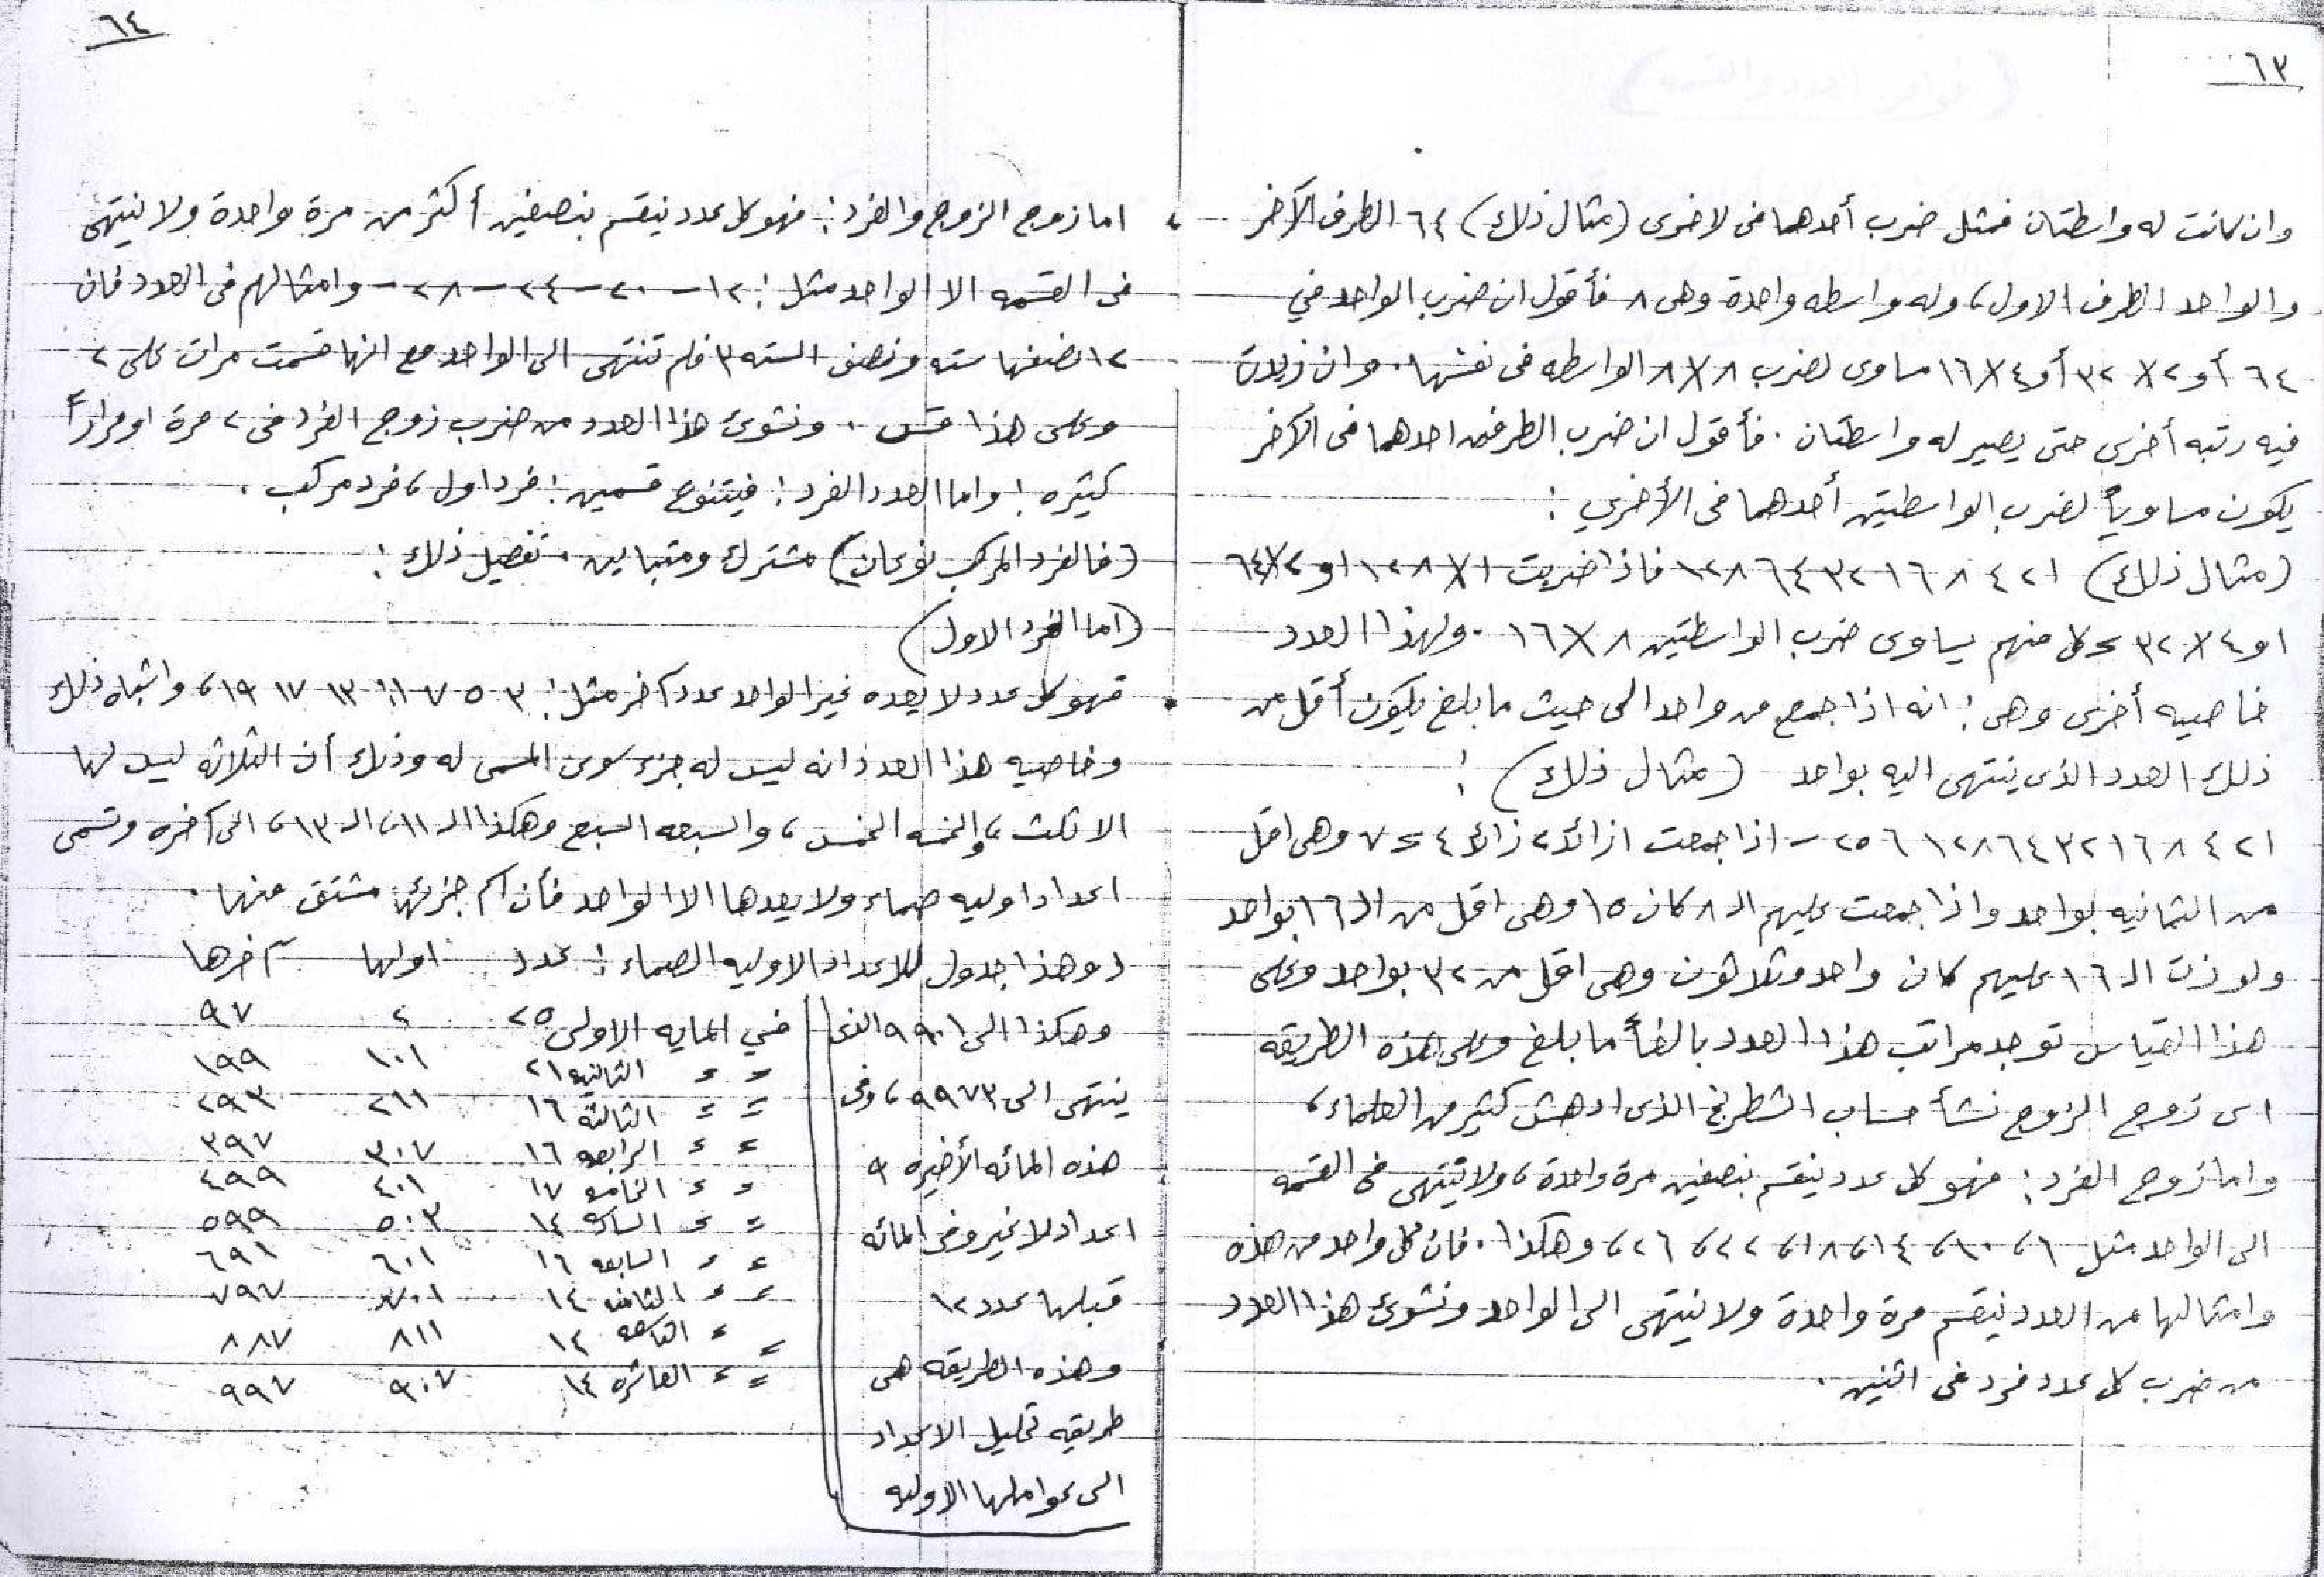 ٦٣
وان كانت له واسطتان فمثل ضرب أحدهما فى لاخرى (مثال ذلك) ٦٤ الطرف الآخر
والواحد الطرف الاول، وله واسطه واحدة وهى ٨ فأقول ان ضرب الواحد في
٦٤ أو ٢ × ٣٢ أو ٤ × ١٦ مساوى لضرب ٨ × ٨ الواسطه فى نفسها. وان زيدت
فيه رتبه أخرى حتى يصير له واسطتان. فأقول ان ضرب الطرفين احدهما فى الآخر
يكون مساوياً لضرب الواسطتين أحدهما فى الأخري :
(مثال ذلك) ١ ٢ ٤ ٨ ١٦ ٣٢ ٦٤ ١٢٨ فاذا ضربت ١ × ١٢٨ او ٢ × ٦٤
او ٤ × ٣٢ = كل منهم يساوى ضرب الواسطتين ٨ × ١٦. ولهذا العدد
خاصيه أخرى وهى : انه اذا جمع من واحد الى حيث ما بلغ يكون أقل من
ذلك العدد الذى ينتهى اليه بواحد (مثال ذلك) :
١ ٢ ٤ ٨ ١٦ ٣٢ ٦٤ ١٢٨ ٢٥٦ - اذا جمعت ١ زائد ٢ زائد ٤ = ٧ وهى اقل
من الثمانيه بواحد واذا جمعت عليهم الـ ٨ كان ١٥ وهى اقل من الـ ١٦ بواحد
ولو زدت الـ ١٦ عليهم كان واحد وثلاثون وهى اقل من ٣٢ بواحد وعلى
هذا القياس توجد مراتب هذا العدد بالغاً ما بلغ وعلى هذه الطريقه
اى زوج الزوج نشأ حساب الشطرنج الذى ادهش كثير من العلماء،
واما زوج الفرد : فهو كل عدد ينقسم بنصفين مرة واحدة، ولا ينتهى فى القسمه
الى الواحد مثل ٦، ١٠، ١٤، ١٨، ٢٢، ٢٦، وهكذا. فان كل واحد من هذه
وامثالها من العدد ينقسم مرة واحدة ولا ينتهى الى الواحد ونشوئ هذا العدد
من ضرب كل عدد فرد فى اثنين.
٦٤
اما زوج الزوج والفرد : فهو كل عدد ينقسم بنصفين أكثر من مرة واحدة ولا ينتهى
فى القسمه الا الواحد مثل : ١٢ - ٢٠ - ٢٤ - ٢٨ - وامثالهم فى العدد فان
١٢ نصفها سته ونصف السته ٣ فلم تنتهى الى الواحد مع انها قسمت مرات على ٢
وعلى هذا قس. ونشوئ هذا العدد من ضرب زوج الفرد فى ٢ مرة او مراراً
كثيره ! واما العدد الفرد : فيتنوع قسمين : فرد اول، فرد مركب.
(فالفرد المركب نوعان) مشترك ومتباين. تفصيل ذلك :
(اما الفرد الاول)
فهو كل عدد لا يعده غير الواحد عدد آخر مثل : ٣ ٥ ٧ ١١ ١٣ ١٧ ١٩، واشباه ذلك
وخاصيه هذا العدد انه ليس له جزء سوى المسمى له وذلك أن الثلاثه ليس لها
الا ثلث، والخمسه الخمس، والسبعه السبع وهكذا الـ ١١، الـ ١٣، الى آخره وتسمى
اعدادا اوليه صماء ولا يعدها الا الواحد فأن اسم جزئها مشتق منها.
(وهذا جدول للاعداد الاوليه الصماء : عدد اولها آخرها
في المايه الاولى ٢٥ ٢ ٩٧
〃 〃 الثانيه ٢١ ١٠١ ١٩٩
〃 〃 الثالثة ١٦ ٢١١ ٢٩٣
〃 〃 الرابعه ١٦ ٣٠٧ ٣٩٧
〃 〃 الخامسه ١٧ ٤٠١ ٤٩٩
〃 〃 السادسه ١٤ ٥٠٣ ٥٩٩
〃 〃 السابعه ١٦ ٦٠١ ٦٩١
〃 〃 الثامنه ١٤ ٧٠١ ٧٩٧
〃 〃 التاسعه ١٤ ٨١١ ٨٨٧
〃 〃 العاشره ١٤ ٩٠٧ ٩٩٧
وهكذا الى ٩٩٠١ الذى
ينتهى الى ٩٩٧٣، وفى
هذه المائه الأخيره ٩
اعداد لا غير وفى المائه
قبلها عدد ١٢
وهذه الطريقه هى
طريقه تحليل الاعداد
الى عواملها الاوليه